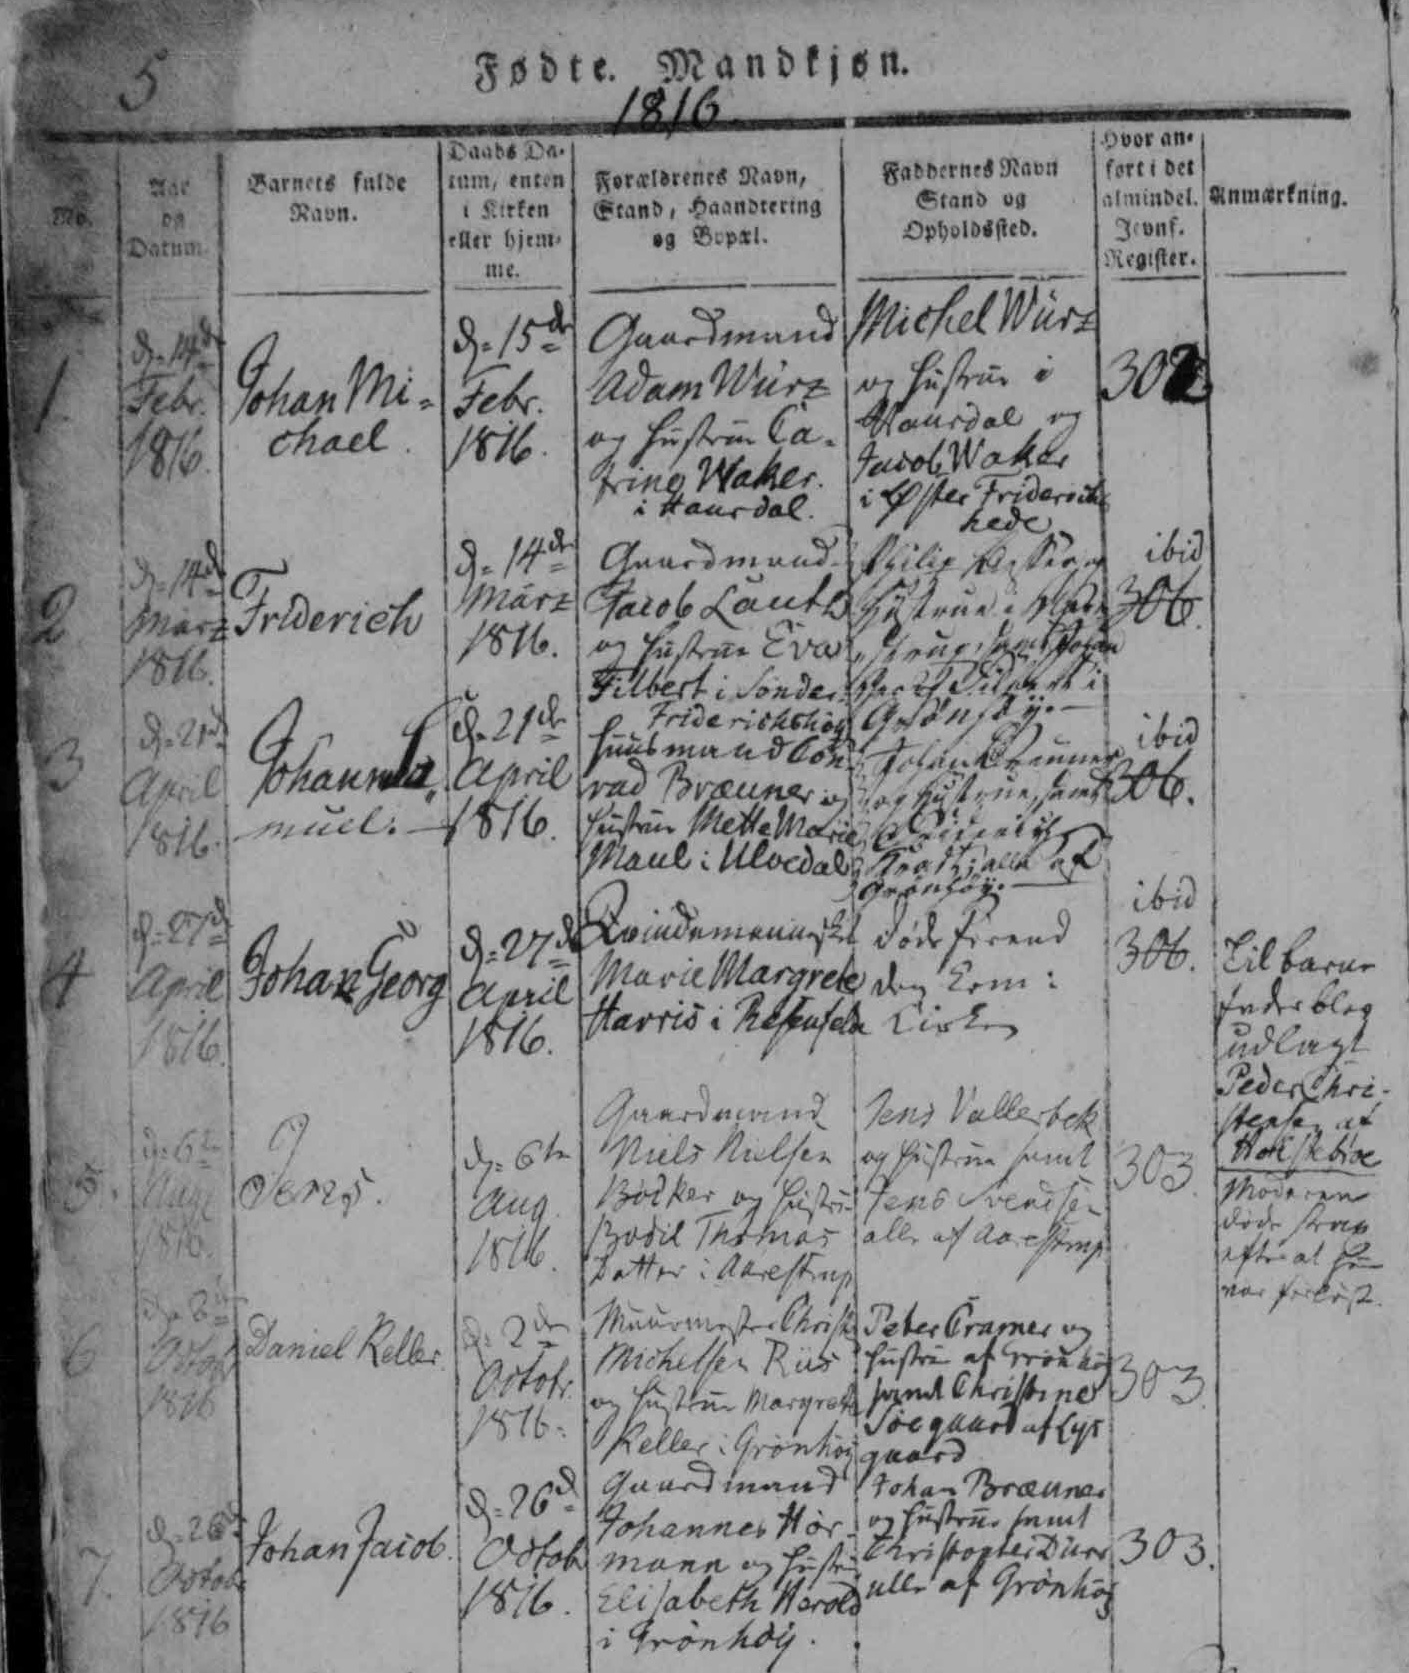 5
Fødte. Mandkjøn.
1816
No.
Aar
og
Datum.
Barnets fulde
Navn.
Daabs Da-
tum, enten
i Kirken
eller hjem-
me.
Forældrenes Navn,
Stand, Haandtering
og Bopæl.
Faddernes Navn
Stand og
Opholdssted.
Hvor an-
ført i det
almindel.
Jevnf.
Register.
Anmærkning.
1.
d: 14de
Febr.
1816.
Johan Mi-
chael.
d: 15de
Febr.
1816.
Gaardmand
Adam Würz
og Hustrue Ca-
trine Waker.
i Haurdal.
Michel Würz
og Hustrue i
Haurdal og
Jacob Waker
i Øster Friderichs
hede
302
2
d: 14de
März
1816.
Friderich
d: 14de
März
1816.
Gaardmand
Jacob Lauth
og Hustrue Eva
Filbert i Sønder
Friderichshøy
Philip
Hustrue i
samt Johan
i
Grønhøy.
ibid
306.
3
d: 21de
April
1816.
Johan Sa-
muel.
d. 21de
April
1816.
Huusmand Con-
rad Bræuner og
Hustrue Mette Marie
Maul i Ulvedal
Johan Bræuner
og Hustrue, samt
alle af
Grønhøy.
ibid
306.
4
d: 27de
April
1816.
Johan Georg
d: 27de
April
1816.
Qvindemennisket
Marie Margrete
Harris i Resenfelde
døde førend
den kom i
Kirken
ibid
306.
Til barne
fader blev
udlagt
Peder Chri-
stensen af
Holstebroe
Moderen
døde strax
efter at hun
var forløst.
5.
d: 6te
Aug.
1816.
Jens.
d: 6te
Aug.
1816.
Gaardmand
Niels Nielsen
Bødker og Hustrue
Bodil Thomas
Datter i Aarestrup
Jens Vallerbek
og Hustrue samt
Jens Svendsen
alle af Aarestrup
303.
6
d: 2den
Octobr
1816
Daniel Keller.
d: 2den
Octobr.
1816.
Muurmester Christ.
Michelsen Riis
og Hustrue Margrete
Keller i Grønhøy
Peter Cramer og
Hustrue af Grønhøy
samt Christine
Søegaard af Lys
gaard
303.
7.
d: 26de
Octobr
1816
Johan Jacob.
d: 26de
Octobr
1816.
Gaardmand
Johannes Hor-
mann og Hustrue
Elisabeth Herold
i Grønhøy.
Johan Bræuner
og Hustrue samt
Christopher Dürr
alle af Grønhøy
303.